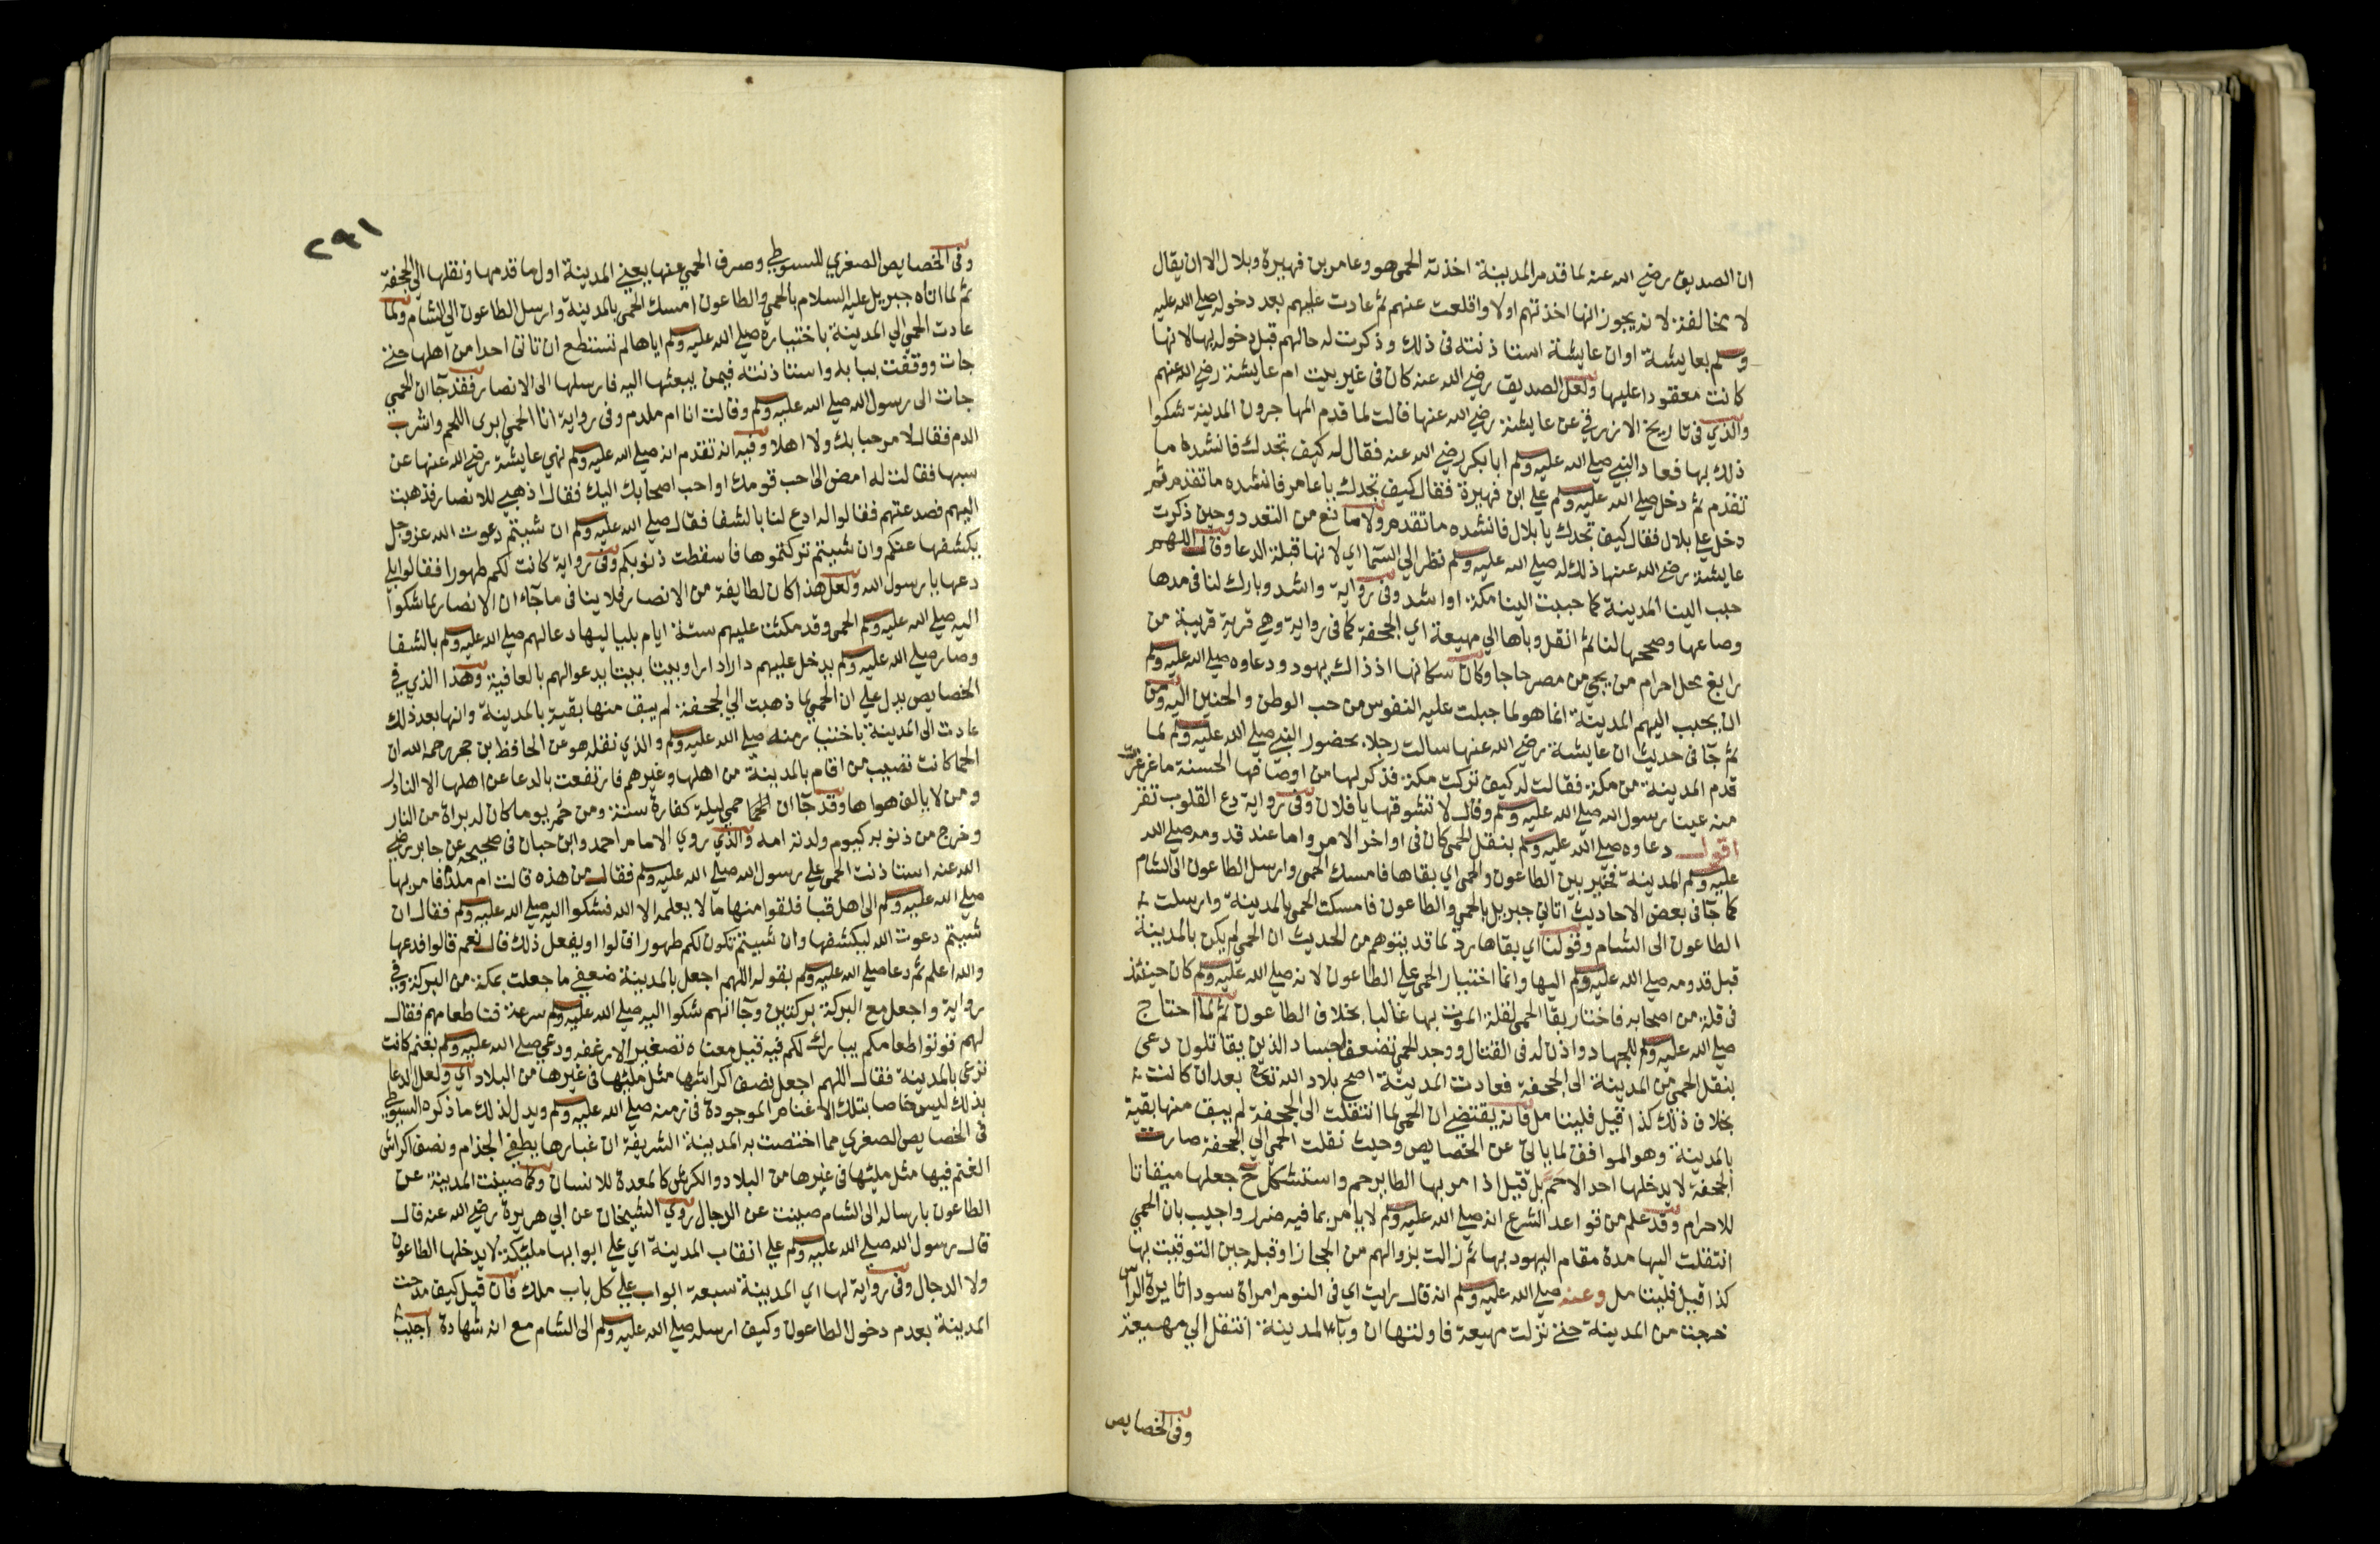 ان الصديق رضي الله عنه لما قدم المدينة اخذته الحمى هو وعامر بن فهيرة وبلال الا ان يقال
لا مخالفة لانه يجوز انها اخذتهم اولا واقلعت عنهم ثم عادت عليهم بعد دخوله صلى الله عليه
وسلم بعايشة او ان عايشة استاذنته في ذلك وذكرت له حالهم قبل دخوله بها لانها
كانت معقودا عليها ولعل الصديق رضي الله عنه كان في غير بيت ام عايشة رضي الله عنهم
والذي في تاريخ الازرقي عن عايشة رضي الله عنها قالت لما قدم المهاجرون المدينة شكوا
ذلك بها فعاد النبي صلى الله عليه وسلم ابا بكر رضي الله عنه فقال له كيف تجدك فانشده ما
تقدم ثم دخل صلى الله عليه وسلم على ابن فهيرة فقال كيف تجدك يا عامر فانشده ما تقدم ثم
دخل على بلال فقال كيف تجدك يا بلال فانشده ما تقدم ولا مانع من التعدد وحين ذكرت
عايشة رضي الله عنها ذلك له صلى الله عليه وسلم نظر الى السمآ اي لانها قبلة الدعا وقال اللهم
حبب الينا المدينة كما حببت الينا مكة او اشد وفي رواية واشد وبارك لنا في مدها
وصاعها وصححها لنا ثم انقل وباها الى مهيعة اي الجحفة كما في رواية وهي قرية قريبة من
رابغ محل احرام من يجي من مصر حاجا وكان سكانها اذ ذاك يهود ودعاوه صلى الله عليه وسلم
ان يحبب اليهم المدينة انما هو لما جبلت عليه النفوس من حب الوطن والحنين اليه ومن
ثم جآ في حديث ان عايشة رضي الله عنها سالت رجلا بحضور النبي صلى الله عليه وسلم لما
قدم المدينة من مكة فقالت له كيف تركت مكة فذكر لها من اوصافها الحسنة ما غرغرت
منه عينا رسول الله صلى الله عليه وسلم وقال لا تشوقها يا فلان وفي رواية دع القلوب تقر
اقول دعاوه صلى الله عليه وسلم بنقل الحمى كان في اواخر الامر واما عند قدومه صلى الله
عليه وسلم المدينة فخير بين الطاعون والحمى اي بقاها فامسك الحمى وارسل الطاعون الى الشام
كما جآ في بعض الاحاديث اتاني جبريل بالحمي والطاعون فامسكت الحمى بالمدينة وارسلت
الطاعون الى الشام وقولنا اي بقاها رد لما قد يتوهم من الحديث ان الحمى لم يكن بالمدينة
قبل قدومه صلى الله عليه وسلم اليها وانما اختيار الحمى على الطاعون لانه صلى الله عليه وسلم كان حينئذ
في قلة من اصحابه فاختار بقا الحمى لقلة الموت بها غالبا بخلاف الطاعون ثم لما احتاج
صلى الله عليه وسلم للجهاد واذن له في القتال ووجد الحمى تضعف اجساد الذين يقاتلون دعى
بنقل الحمى من المدينة الى الجحفة فعادت المدينة اصح بلاد الله تعالى بعد ان كانت
بخلاف ذلك كذا قيل فليتامل فانه يقتضي ان الحمى لما انتقلت الى الجحفة لم يبق منها بقية
بالمدينة وهو الموافق لما ياتي عن الخصايص وحيث نقلت الحمى الى الجحفة صارت
الجحفة لا يدخلها احد الا حم بل قيل اذا مر بها الطاير حم واستشكل ح جعلها ميقاتا
للاحرام وقد علم من قواعد الشرع انه صلى الله عليه وسلم لا يامر بما فيه ضرر واجيب بان الحمى
انتقلت اليها مدة مقام اليهود بها ثم زالت بزوالهم من الحجاز او قبله حين التوقيت بها
كذا قيل فليتامل وعنه صلى الله عليه وسلم انه قال رايت اي في النوم امراة سودا ثايرة الراس
خرجت من المدينة حتى نزلت مهيعة فاولتها ان وباء المدينة انتقل الى مهيعة
وفي الخصايص
٢٩١
وفي الخصايص الصغرى للسيوطي وصرف الحمى عنها يعني المدينة اول ما قدمها ونقلها الى الجحفة
ثم لما اتاه جبريل عليه السلام بالحمى والطاعون امسك الحمى بالمدينة وارسل الطاعون الى الشام ولما
عادت الحمى الى المدينة باختياره صلى الله عليه وسلم اياها لم تستطع ان تاتي احدا من اهلها حتى
جات ووقفت ببابه واستاذنته فيمن يبعثها اليه فارسلها الى الانصار فقد جآ ان الحمي
جات الى رسول الله صلى الله عليه وسلم وقالت انا ام ملدم وفي رواية انا الحمى ابرى اللحم واشرب
الدم فقال لا مرحبا بك ولا اهلا وفيه انه تقدم انه صلى الله عليه وسلم نهي عايشة رضي الله عنها عن
سبها فقالت له امض الى احب قومك او احب اصحابك اليك فقال اذهبي للانصار فذهبت
اليهم فصدعتهم فقالوا له ادع لنا بالشفا فقال صلى الله عليه وسلم ان شيتم دعوت الله عز وجل
يكشفها عنكم وان شيتم تركتموها فاسقطت ذنوبكم وفي رواية كانت لكم طهورا فقالوا بلى
دعها يا رسول الله ولعل هذا كان لطايفة من الانصار فلا ينافي ما جآء ان الانصار لما شكوا
اليه صلى الله عليه وسلم الحمى وقد مكثت عليهم ستة ايام بلياليها دعا لهم صلى الله عليه وسلم بالشفا
وصار صلى الله عليه وسلم يدخل عليهم دارا دارا وبيتا بيتا يدعوا لهم بالعافية وهذا الذي في
الخصايص يدل على ان الحمى لما ذهبت الى الجحفة لم يبق منها بقية بالمدينة وانها بعد ذلك
عادت الى المدينة باختيار منه صلى الله عليه وسلم والذي نقله هو عن الحافظ بن حجر رحمه الله ان
الحما كانت تصيب من اقام بالمدينة من اهلها وغيرهم فارتفعت بالدعا عن اهلها الا النادر
ومن لا يالف هواها وقد جآ ان الحما حمي ليلة كفارة سنة ومن حم يوما كان له براة من النار
وخرج من ذنوبه كيوم ولدته امه والذي روي الامام احمد وابن حبان في صحيحه عن جابر رضي
الله عنه استاذنت الحمى على رسول الله صلى الله عليه وسلم فقال من هذه قالت ام ملدم فامر بها
صلى الله عليه وسلم الى اهل قبا فلقوا منها ما لا يعلمه الا الله فشكوا اليه صلى الله عليه وسلم فقال ان
شيتم دعوت الله ليكشفها وان شيتم تكون لكم طهورا قالوا او يفعل ذلك قال نعم قالوا فدعها
والله اعلم ثم دعا صلى الله عليه وسلم بقوله اللهم اجعل بالمدينة ضعفي ما جعلت بمكة من البركة وفي
رواية واجعل مع البركة بركتين وجآ انهم شكوا اليه صلى الله عليه وسلم سرعة فنا طعامهم فقال
لهم قوتوا طعامكم يبارك لكم فيه قيل معناه تصغير الارغفه ودعي صلى الله عليه وسلم بغنم كانت
ترعى بالمدينة فقال اللهم اجعل نصف اكراشها مثل مليها في غيرها من البلاد اي ولعل الدعا
بذلك ليس خاصا بتلك الاغنام الموجودة في زمنه صلى الله عليه وسلم ويدل لذلك ما ذكره السيوطي
في الخصايص الصغرى مما اختصت به المدينة الشريفة ان غبارها يطفي الجذام ونصف اكراش
الغنم فيها مثل مليها في غيرها من البلاد والكرش كالمعدة للانسان وكما صينت المدينة عن
الطاعون بارساله الى الشام صينت عن الدجال روي الشيخان عن ابي هريرة رضي الله عنه قال
قال رسول الله صلى الله عليه وسلم على انقاب المدينة اي على ابوابها مليكة لا يدخلها الطاعون
ولا الدجال وفي رواية لها اي المدينة سبعة ابواب على كل باب ملك فان قيل كيف مدحت
المدينة بعدم دخول الطاعون وكيف ارسله صلى الله عليه وسلم الى الشام مع انه شهادة اجيب